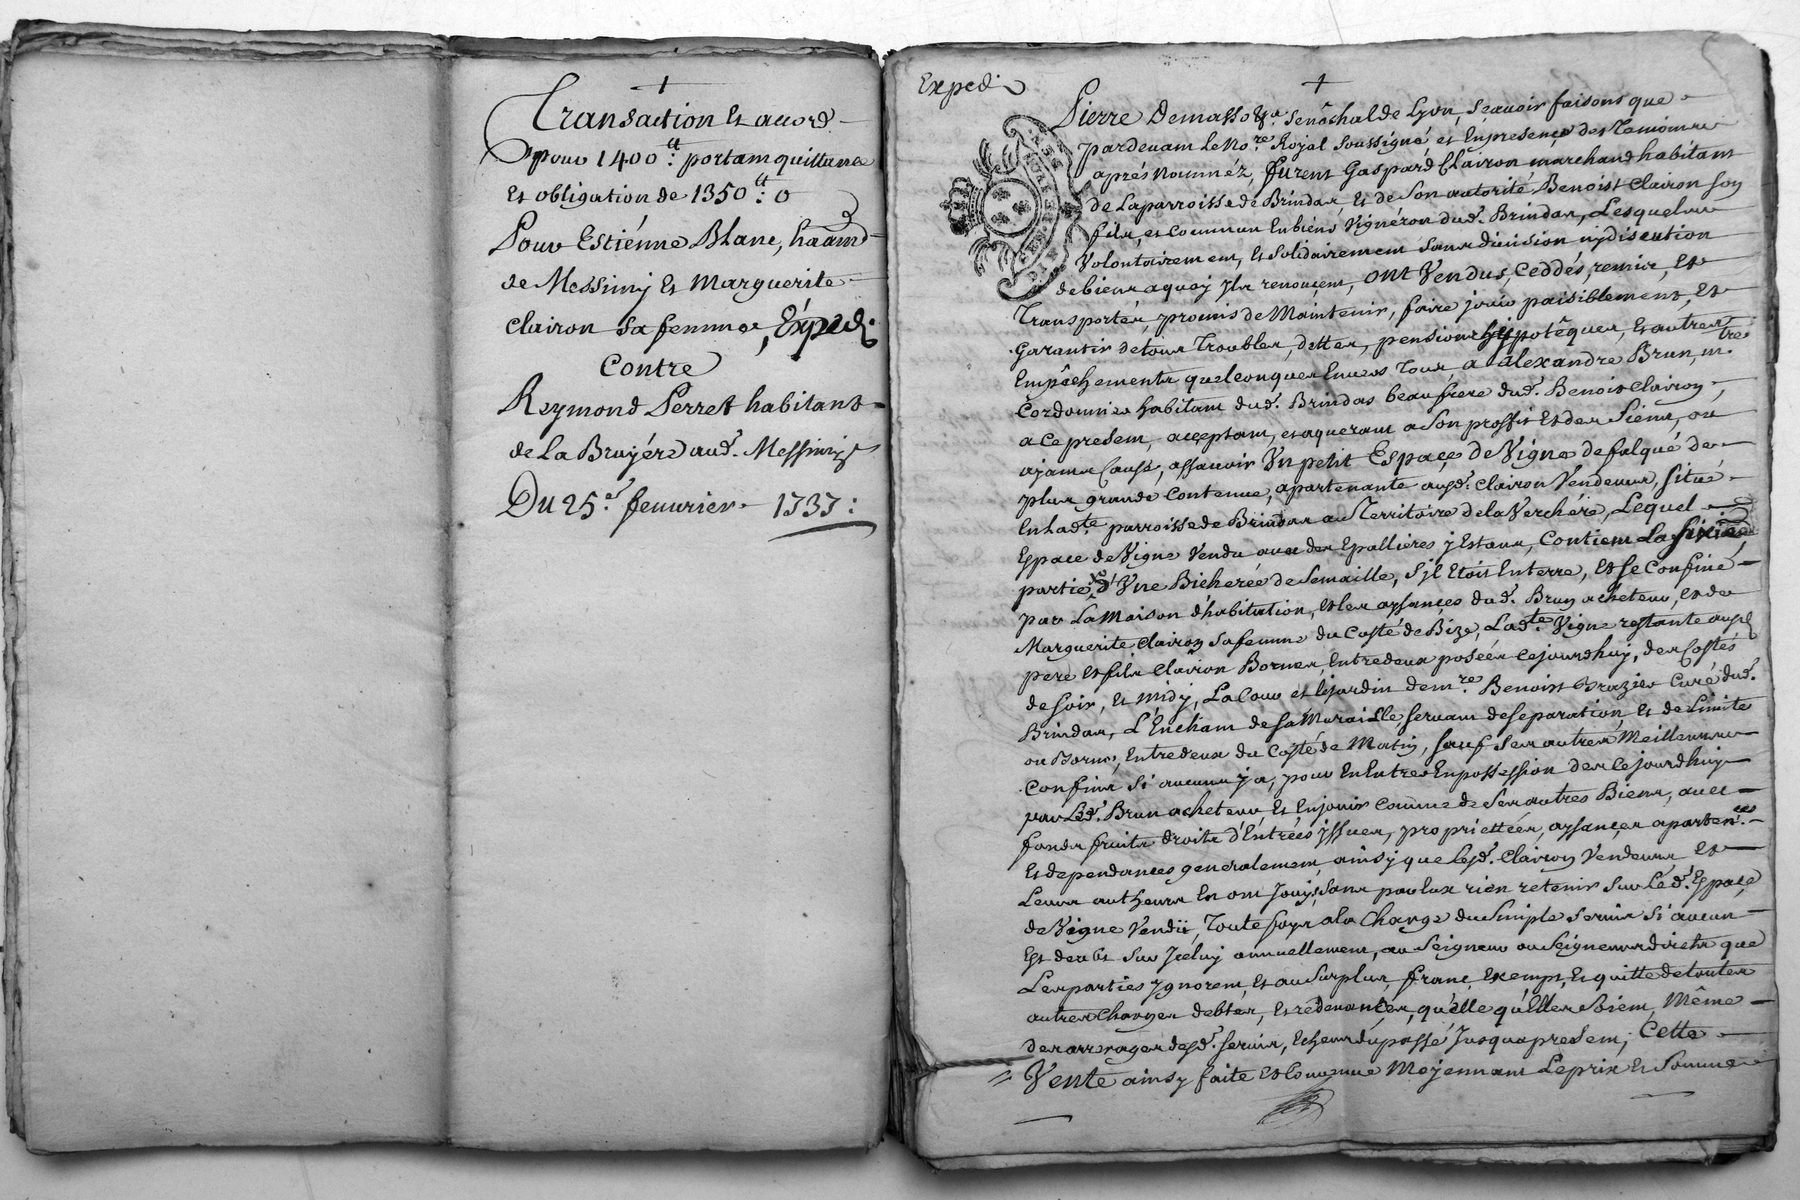 Transaction Et accord
pour 1400 tt: portant quittance
Et obligation de 1350 tt: 0
Pour Estiénne Blanc, habitant
de Messimy Et Marguerite
Clairon sa femme, Expedi.
Contre
Reymond Perret habitant
de La Bruyére aud. Messimy
Du 25.e feuurier 1737:
Expedi
Pierre Demasso &a senêchal de Lyon, sçauoir faisons que
pardeuant Le No.re Royal soussigné et En presence des Temoins
aprés nommés, furent Gaspard Clairon marchand habitant
de La parroisse de Brindas, Et de son autorité Benoist Clairon son
fils, et Commun En biens Vignéron dud. Brindas, Lesquels
Volontairement, Et solidairement sans diuision ny discution
de biens a quoy Ils renonçent, ont Vendus, Ceddés, remis, Et
Transportés, promis de Maintenir, faire jouir paisiblement, Et
Garantir de tous Troubles, dettes, pensions hypotêques, Et autres
Empêchements quelconques Enuers Tous, a Alexandre Brun, m.tre
Cordonnier habitant dud. Brindas beaufrere dud. Benoist Clairon,
a ce present, acçeptant, et aquerant a Son proffit Et des Siens, ou
ajants Cause, assauoir Vn petit Espaçe de Vigne defalqué de
plus grande Contenue, apartenante ausd. Clairon Vendeurs, situé
En Lad.te parroisse de Brindas au Territoire de la Verchére, Lequel
Espace de Vigne Vendu auec des Epallieres y Estans, Contient La sixie
partie d'Vne Bicherée de Semaille, s'jl Etoit En terre, Et se Confine
par La Maison d'habitation, Et les aysançes dud. Brun acheteur, et de
Marguerite Clairon sa femme du Costé de Bize, Lad.te Vigne restante ausd
pere Et fils Clairon Bornes Entredeux poséés cejourdhuy, des Costés
de soir, Et midy, La Cour et le jardin de m.re Benoist Brazier Curé dud.
Brindas, L'Enchant de sa Muraille, seruant de separation, Et de Limite
ou Borne, Entredeux du Costé de Matin, sauf ses autres Meilleurs
Confins si aucuns y a, pour En Entrer En possession des Cejourdhuy
par Led. Brun acheteur, Et En jouir comme de ses autres Biens, auec
fonds fruits droits d'Entréés jssues, proprietéés, aysançes aparten.ces
Et dependances generalement, ainsy que Lesd. Clairon Vendeurs Et
Leurs autheurs En ont Jouys, sans par Eux rien retenir sur Led. Espaçe
de Vigne Vendu, Toutefoys a la Charge du simple seruis si aucun
Est deub sur Jceluy annuellement, au Seigneur ou Seigneurs directs que
Les parties ygnorent, Et au surplus, franc, Exempt, Et quitte de toutes
autres Charges debtes, Et redeuances, qu'elle qu'elles soient, Même
des arrerages desd. seruis, Echeus du passé Jusqua present, Cette
Vente ainsy faite Et Conuenue Moyennant Le prix Et Somme